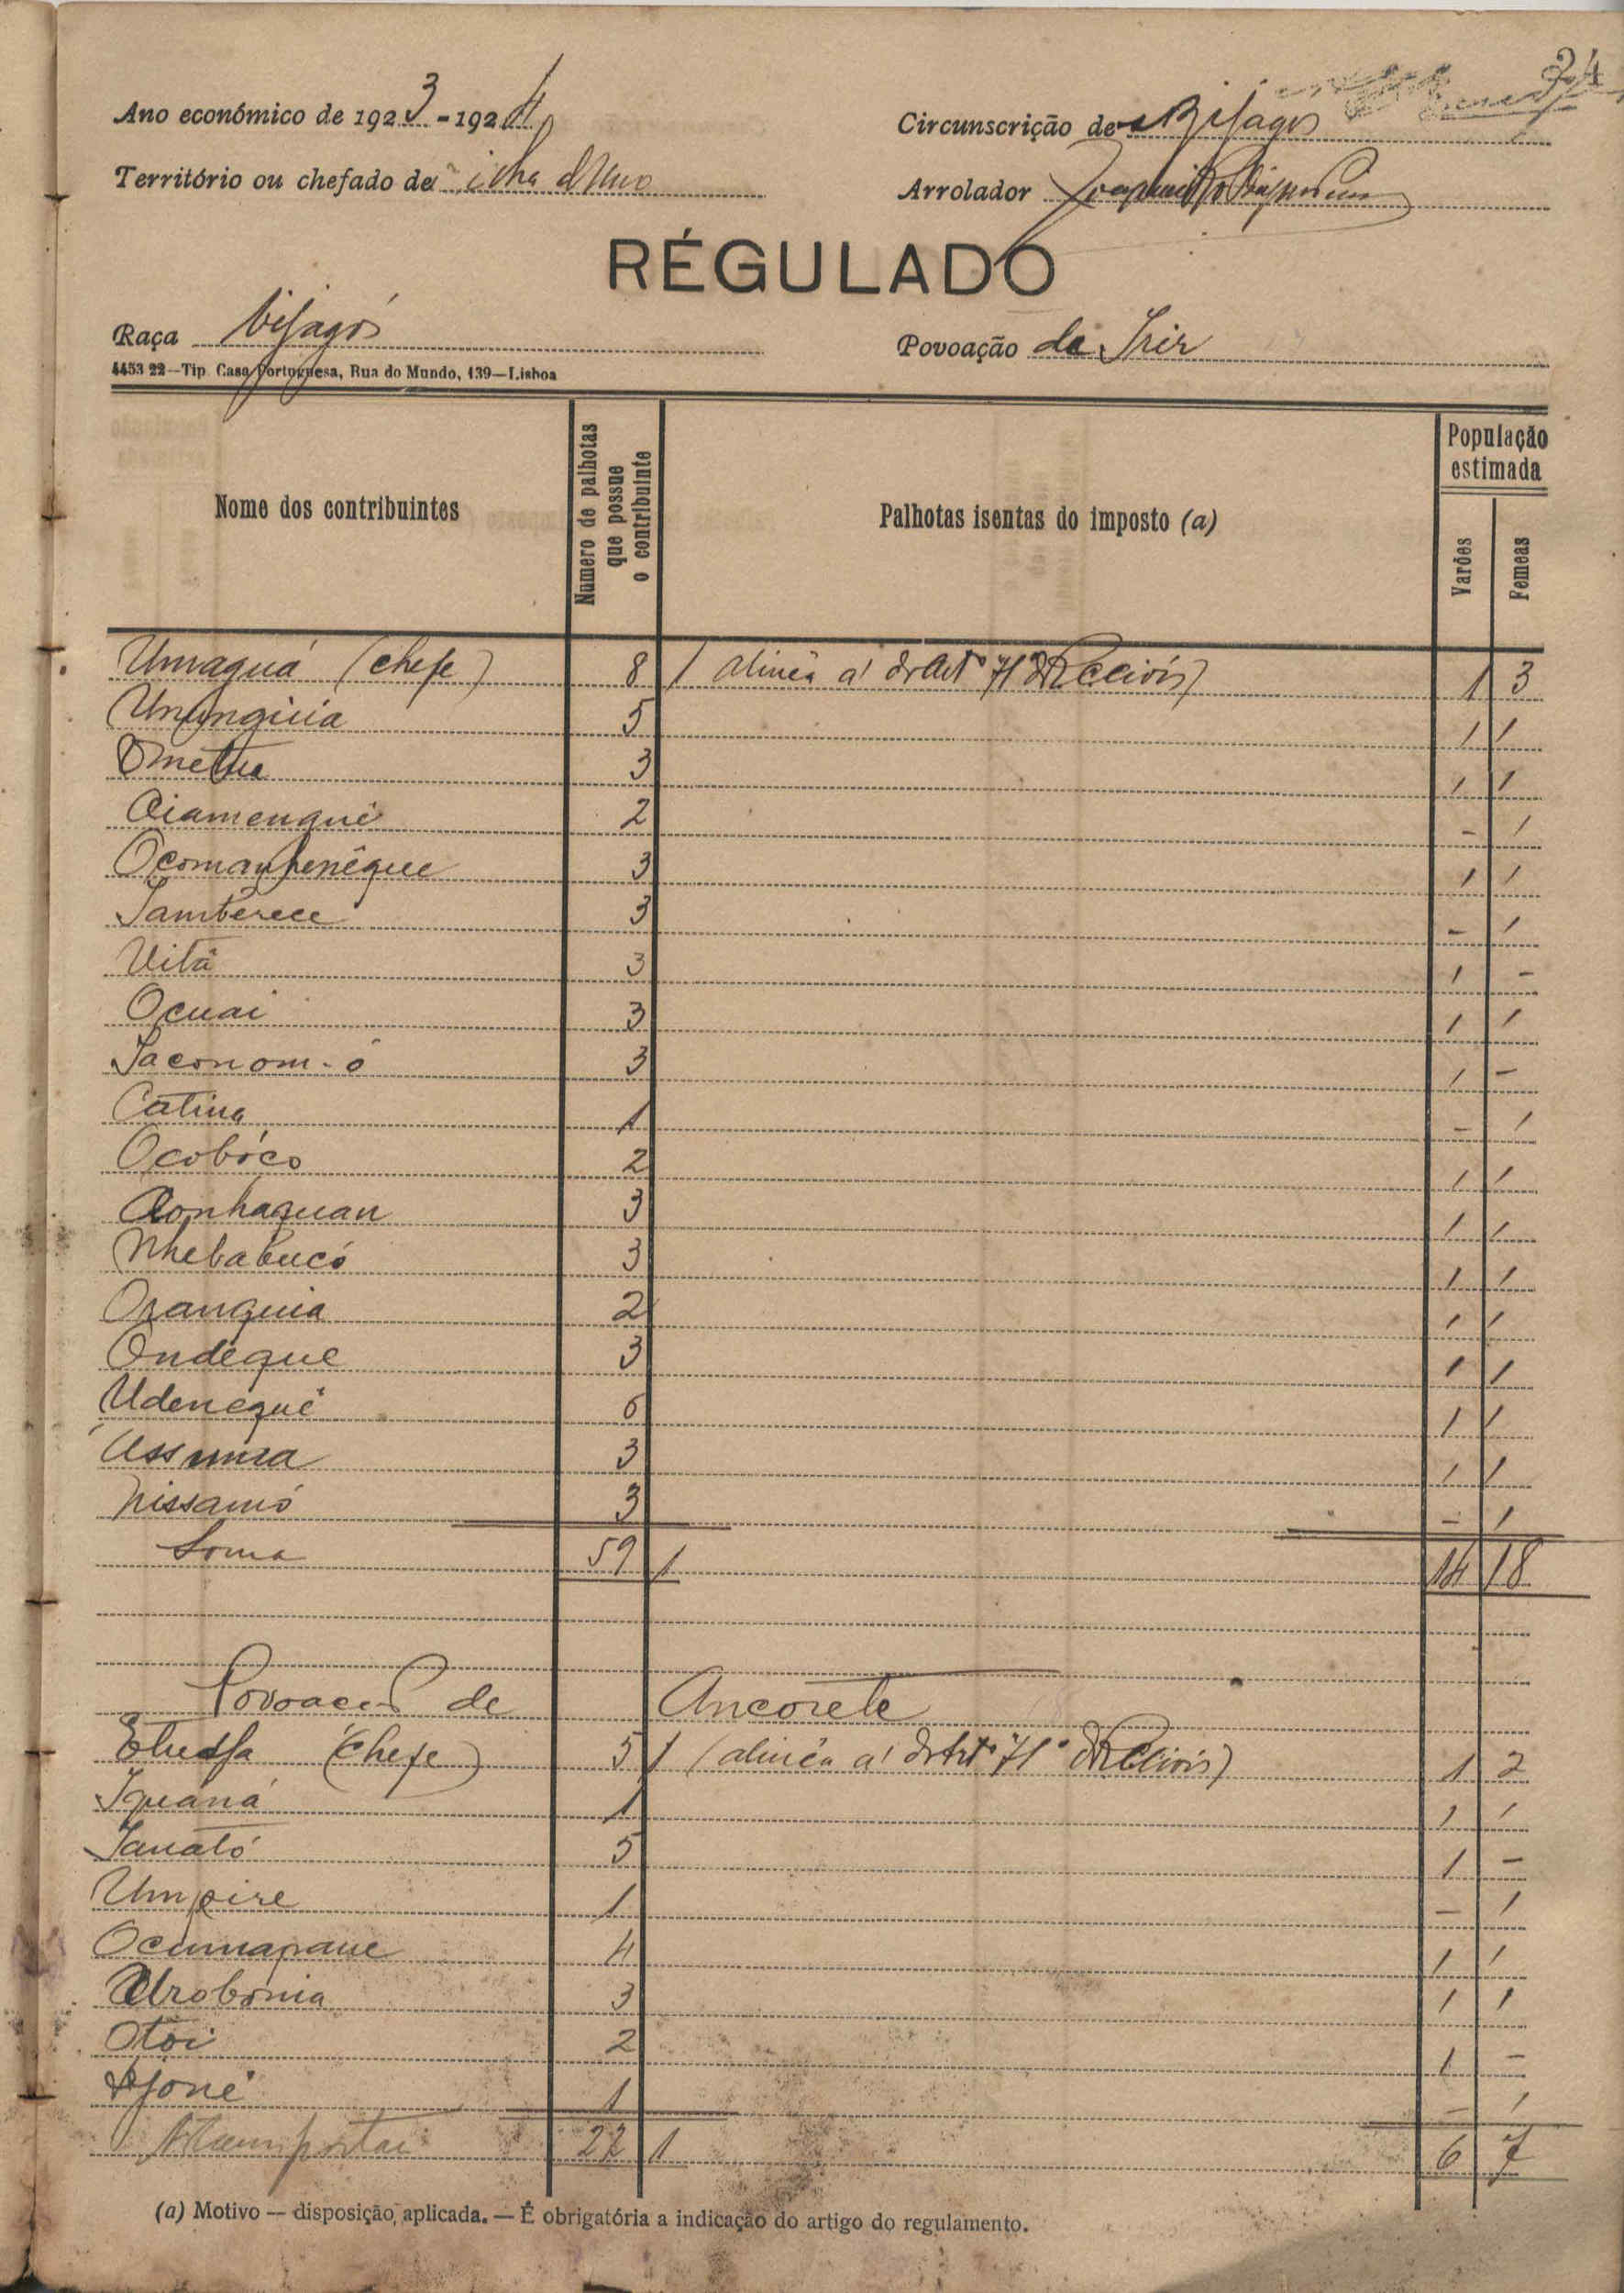 24
Ano económico de 1923-1924
Circunscrição de Bijagós
Território ou chefado de ilha d'Uno
Arrolador Joaquim
RÉGULADO
Raça bijagós
Povoação de Irir
4453 22—Tip. Casa Portuguesa, Rua do Mundo, 139—Lisboa
Nome dos contribuintes
Numero de palhotas que possue o contribuinte
Palhotas isentas do imposto (a)
População estimada
Varões
Femeas
Umaguá (chefe) 8 1 alinêa a' do Artº 71 1 3
5 1 1
Ometue 3 1 1
Ciamenguê 2 - 1
3 1 1
Jamberece 3 - 1
Vitâ 3 1 -
Ocuai 3 1 1
Jaconom-ó 3 1 -
Catina 1 - 1
Ocobóco 2 1 1
Conhaguan 3 1 1
Nhebabucó 3 1 1
Oranguia 2 1 1
Ondéque 3 1 1
Udenequê 6 1 1
3 1 1
Nissamó 3 - 1
Soma 59 1 14 18
Povoação de Ancorete
(chefe) 5 1 (alinêa a' do Artº 71º 1 2
Iguaná 1 1 1
Janató 5 1 -
Umpire 1 - 1
4 1 1
Urobonia 3 1 1
Otoi 2 1 -
1 - 1
A transportar 22 1 6 7
(a) Motivo — disposição aplicada. — É obrigatória a indicação do artigo do regulamento.